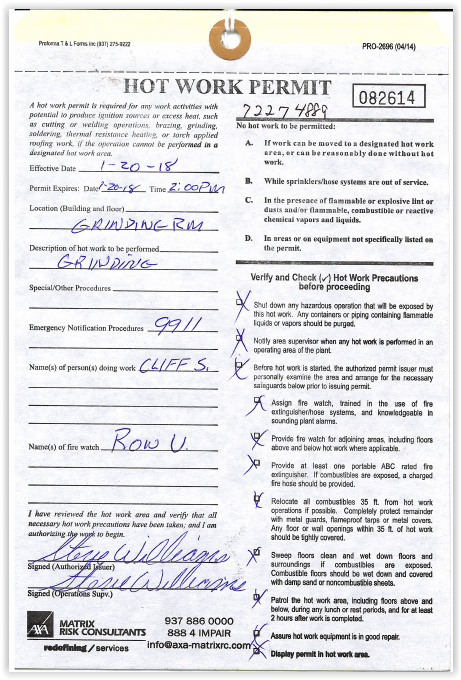 Proforma T & L Forms Inc (937) 275-0222
PRO-2696 (04/14)
HOT WORK PERMIT
A hot work permit is required for any work activities with
potential to produce ignition sources or excess heat, such
as cutting or welding operations, brazing, grinding,
soldering, thermal resistance heating, or torch applied
roofing work, if the operation cannot be performed in a
designated hot work area.
Effective Date 1-20-18
Permit Expires: Date 1-20-18 Time 2:00PM
Location (Building and floor)
GRINDING RM
Description of hot work to be performed
GRINDING
Special/Other Procedures
Emergency Notification Procedures 9911
Name(s) of person(s) doing work CLIFF S.
Name(s) of fire watch RON U.
I have reviewed the hot work area and verify that all
necessary hot work precautions have been taken; and I am
authorizing the work to begin.
Steve Williams
Signed (Authorized Issuer)
Steve Williams
Signed (Operations Supv.)
AXA
MATRIX
RISK CONSULTANTS
redefining / services
937 886 0000
888 4 IMPAIR
info@axa-matrixrc.com
72274889
082614
No hot work to be permitted:
A. If work can be moved to a designated hot work
area, or can be reasonably done without hot
work.
B. While sprinklers/hose systems are out of service.
C. In the presence of flammable or explosive lint or
dusts and/or flammable, combustible or reactive
chemical vapors and liquids.
D. In areas or on equipment not specifically listed on
the permit.
Verify and Check (✓) Hot Work Precautions
before proceeding
Shut down any hazardous operation that will be exposed by
this hot work. Any containers or piping containing flammable
liquids or vapors should be purged.
Notify area supervisor when any hot work is performed in an
operating area of the plant.
Before hot work is started, the authorized permit issuer must
personally examine the area and arrange for the necessary
safeguards below prior to issuing permit.
Assign fire watch, trained in the use of fire
extinguisher/hose systems, and knowledgeable in
sounding plant alarms.
Provide fire watch for adjoining areas, including floors
above and below hot work where applicable.
Provide at least one portable ABC rated fire
extinguisher. If combustibles are exposed, a charged
fire hose should be provided.
Relocate all combustibles 35 ft. from hot work
operations if possible. Completely protect remainder
with metal guards, flameproof tarps or metal covers.
Any floor or wall openings within 35 ft. of hot work
should be tightly covered.
Sweep floors clean and wet down floors and
surroundings if combustibles are exposed.
Combustible floors should be wet down and covered
with damp sand or noncombustible sheets.
Patrol the hot work area, including floors above and
below, during any lunch or rest periods, and for at least
2 hours after work is completed.
Assure hot work equipment is in good repair.
Display permit in hot work area.